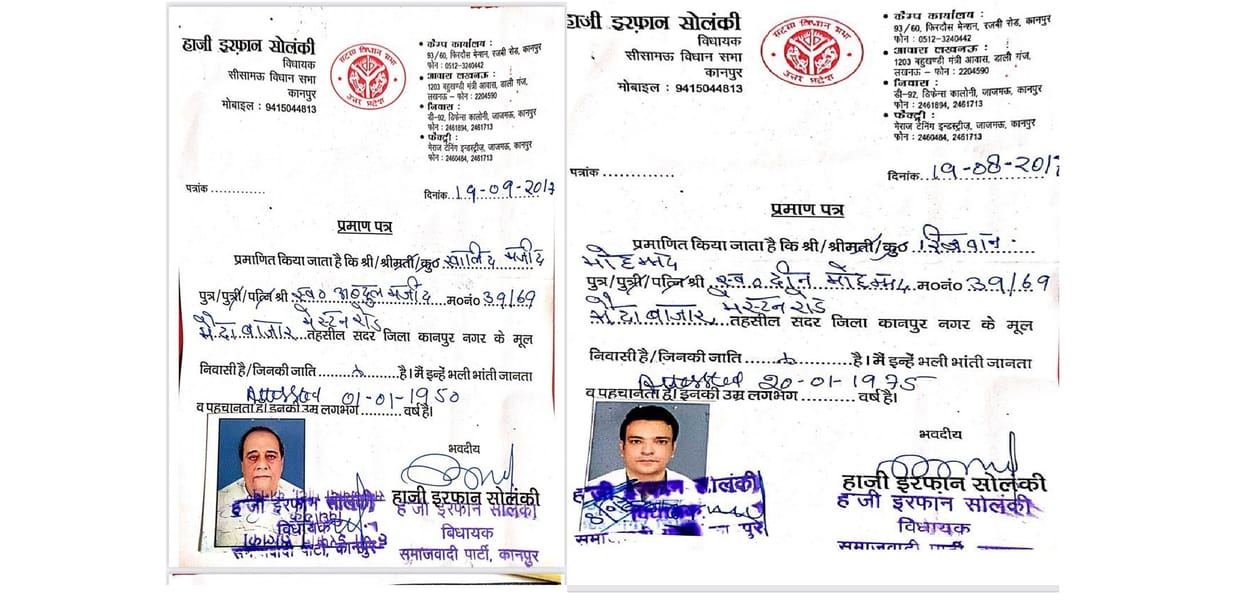 हाजी इरफान सोलंकी
विधायक
सीसामऊ विधान सभा
कानपुर
मोबाइल : 9415044813
सदस्य विधान सभा
उत्तर प्रदेश
• कैम्प कार्यालय :
93/60, फिरदौस मेन्शन, रजबी रोड, कानपुर
फोन : 0512-3240442
• आवास लखनऊ :
1203 बहुखण्डी मंत्री आवास, डाली गंज,
लखनऊ – फोन : 2204590
• निवास :
डी-92, डिफेन्स कालोनी, जाजमऊ, कानपुर
फोन : 2461894, 2461713
• फैक्ट्री :
मेराज टेनिंग इन्डस्ट्रीज़, जाजमऊ, कानपुर
फोन : 2460484, 2461713
पत्रांक .............
दिनांक. 19-09-2017
प्रमाण पत्र
प्रमाणित किया जाता है कि श्री/श्रीमती/कु० खालिद मजीद
पुत्र/पुत्री/पत्नि श्री स्व० अब्दुल मजीद म०नं० 39/69
मैदा बाजार मेस्टन रोड तहसील सदर जिला कानपुर नगर के मूल
निवासी है/जिनकी जाति ............ है। मैं इन्हें भली भांती जानता
Attested 01-01-1950
व पहचानता हूं। इनकी उम्र लगभग .......... वर्ष है।
भवदीय
हाजी इरफान सोलंकी
हाजी इरफान सोलंकी
विधायक
समाजवादी पार्टी, कानपुर
हाजी इरफान सोलंकी
विधायक
समाजवादी पार्टी, कानपुर
हाजी इरफान सोलंकी
विधायक
सीसामऊ विधान सभा
कानपुर
मोबाइल : 9415044813
सदस्य विधान सभा
उत्तर प्रदेश
• कैम्प कार्यालय :
93/60, फिरदौस मेन्शन, रजबी रोड, कानपुर
फोन : 0512-3240442
• आवास लखनऊ :
1203 बहुखण्डी मंत्री आवास, डाली गंज,
लखनऊ – फोन : 2204590
• निवास :
डी-92, डिफेन्स कालोनी, जाजमऊ, कानपुर
फोन : 2461894, 2461713
• फैक्ट्री :
मेराज टेनिंग इन्डस्ट्रीज़, जाजमऊ, कानपुर
फोन : 2460484, 2461713
पत्रांक .............
दिनांक. 19-08-2017
प्रमाण पत्र
प्रमाणित किया जाता है कि श्री/श्रीमती/कु० रिजवान
मोहम्मद
पुत्र/पुत्री/पत्नि श्री स्व० दीन मोहम्मद म०नं० 39/69
मैदा बाजार मेस्टन रोड तहसील सदर जिला कानपुर नगर के मूल
निवासी है/जिनकी जाति ............ है। मैं इन्हें भली भांती जानता
Attested 20-01-1975
व पहचानता हूं। इनकी उम्र लगभग .......... वर्ष है।
भवदीय
हाजी इरफान सोलंकी
हाजी इरफान सोलंकी
विधायक
समाजवादी पार्टी
हाजी इरफान सोलंकी
विधायक